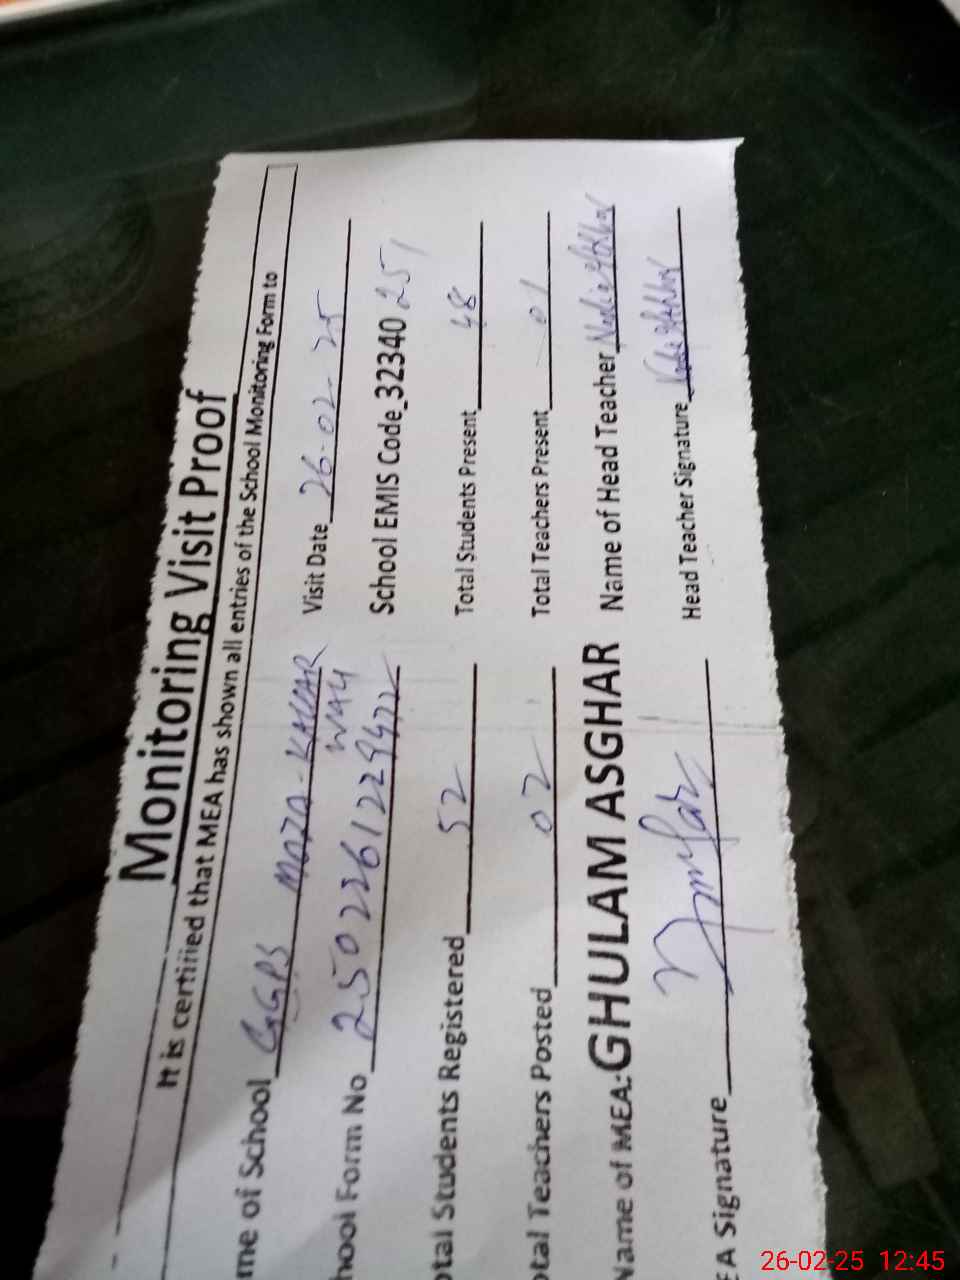 Monitoring Visit Proof
It is certified that MEA has shown all entries of the School Monitoring Form to
me of School GGPS MOZA-
Visit Date 26-02-25
hool Form No
School EMIS Code_32340 251
otal Students Registered 52
Total Students Present 48
otal Teachers Posted 02
Total Teachers Present 01
Name of MEA:GHULAM ASGHAR
Name of Head Teacher
A Signature
Head Teacher Signature
26-02-25 12:45